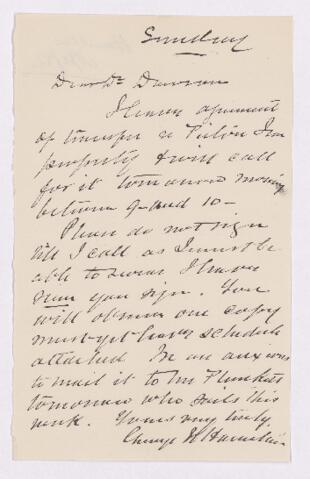 Sunday
Dear Dr Dawson
I leave agreement
of transfer
property & will call
for it tomorrow morning
between 9 and 10 -
Please do not sign
till I call as I must be
able to swear I have
seen you sign. You
will observe one copy
must yet have schedule
attached. We are anxious
to mail it to Mr Plunkett
tomorrow who sails this
week. Yours very truly,
George H